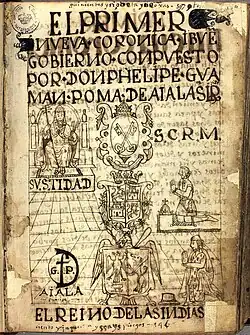 EL PRIMER
NVEVA·CORONICA·IBVE
GOBIERNO·CONPVESTO
POR·DON PHELIPE·GVA
MAN·POMA·DE AIALA SIR
S.C.R.M.
SV S.TIDAD
G P
AIALA
EL REINO DE LAS INDIAS